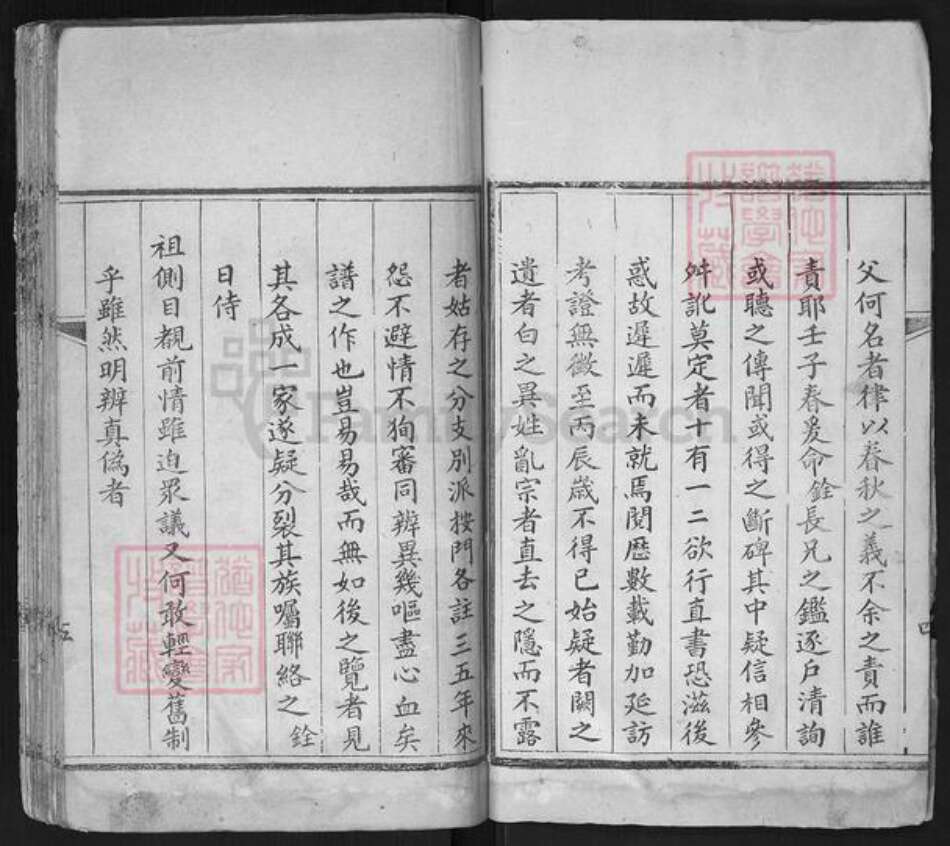 父何名者律以春秋之義不余之責而誰
責耶壬子春爰命銓長兄之鑑逐戶清詢
或聽之傳聞或得之斷碑其中疑信相參
舛訛莫定者十有一二欲行直書恐滋後
惑故遲遲而未就焉閱歷數載勤加延訪
考證無徵至丙辰歲不得已始疑者闕之
遺者白之異姓亂宗者直去之隱而不露
者姑存之分支別派按門各註三五年來
怨不避情不狥審同辨異幾嘔盡心血矣
譜之作也豈易易哉而無如後之覽者見
其各成一家遂疑分裂其族囑聯絡之銓
日侍
祖側目覩前情雖迫眾議又何敢輕變舊制
乎雖然明辨真偽者
四
五
FamilySearch